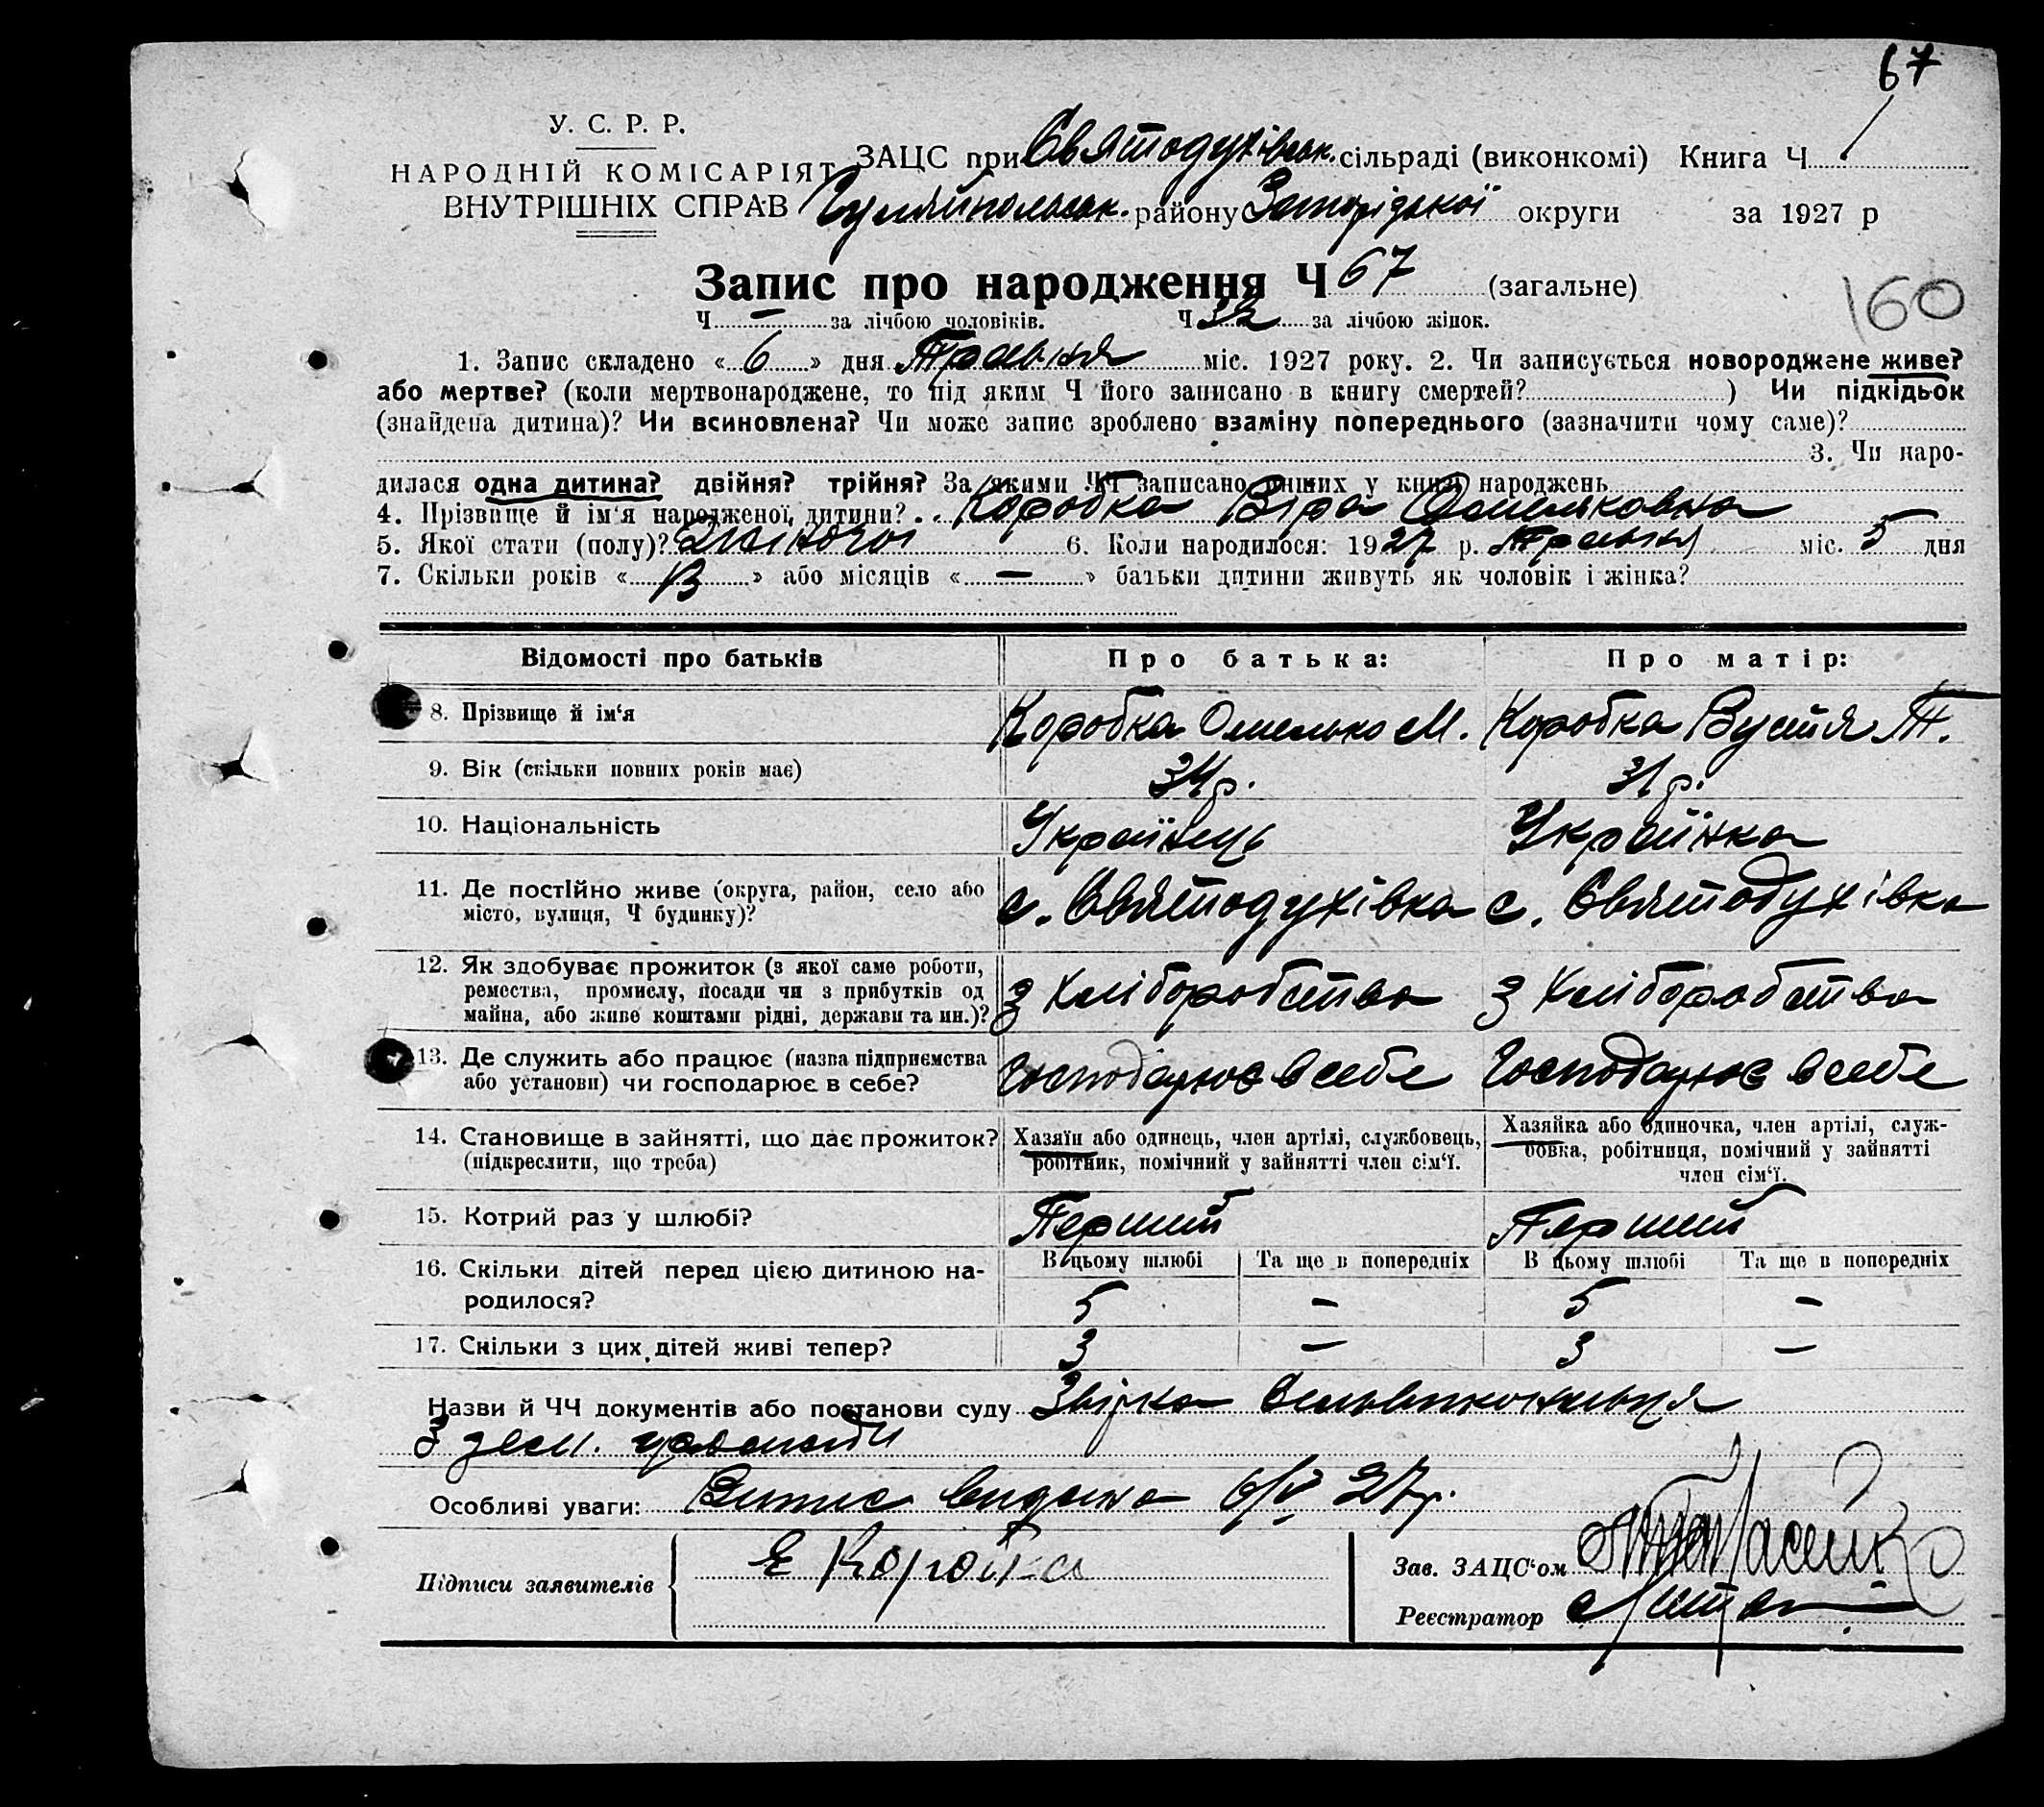 67
У. С. Р. Р.
НАРОДНІЙ КОМІСАРІЯТ
ВНУТРІШНІХ СПРАВ
ЗАЦС при Святодухівськ. сільраді (виконкомі) Книга Ч 1
Гуляйпольськ. району Запорізької округи за 1927 р
Запис про народження Ч 67 (загальне)
160
Ч — за лічбою чоловіків. Ч 32 за лічбою жінок.
1. Запис складено « 6 » дня Травня міс. 1927 року. 2. Чи записується новороджене живе?
або мертве? (коли мертвонароджене, то під яким Ч його записано в книгу смертей? ) Чи підкідьок
(знайдена дитина)? Чи всиновлена? Чи може запис зроблено взаміну попереднього (зазначити чому саме)?
3. Чи наро-
дилася одна дитина? двійня? трійня? За якими ЧЧ записано инших у книзі народжень
4. Прізвище й ім‘я народженої дитини? Коробка Віра Омельковна
5. Якої стати (полу)? Жіночої 6. Коли народилося: 1927 р. Травня міс. 5 дня
7. Скільки років « 13 » або місяців « — » батьки дитини живуть як чоловік і жінка?
Відомості про батьків Про батька: Про матір:
8. Прізвище й ім‘я Коробка Омелько М. Коробка Вустя Т.
9. Вік (скільки повних років має) 34 р. 31 р.
10. Національність Українець Українка
11. Де постійно живе (округа, район, село або
місто, вулиця, Ч будинку)? с. Святодухівка с. Святодухівка
12. Як здобуває прожиток (з якої саме роботи,
ремества, промислу, посади чи з прибутків од
майна, або живе коштами рідні, держави та ин.)? З хліборобства З хліборобства
13. Де служить або працює (назва підприємства
або установи) чи господарює в себе? Господарює в себе Господарює в себе
14. Становище в зайнятті, що дає прожиток?
(підкреслити, що треба)
Хазяїн або одинець, член артілі, службовець,
робітник, помічний у зайнятті член сім‘ї.
Хазяйка або одиночка, член артілі, служ-
бовка, робітниця, помічний у зайнятті
член сім‘ї.
15. Котрий раз у шлюбі? Перший Перший
16. Скільки дітей перед цією дитиною на-
родилося?
В цьому шлюбі Та ще в попередніх В цьому шлюбі Та ще в попередніх
5 — 5 —
17. Скільки з цих дітей живі тепер? 3 — 3 —
Назви й ЧЧ документів або постанови суду Звірка
З
Особливі уваги: Витис видано 6/V 27 р.
Підписи заявителів Е Коробка
Зав. ЗАЦС‘ом
Реєстратор